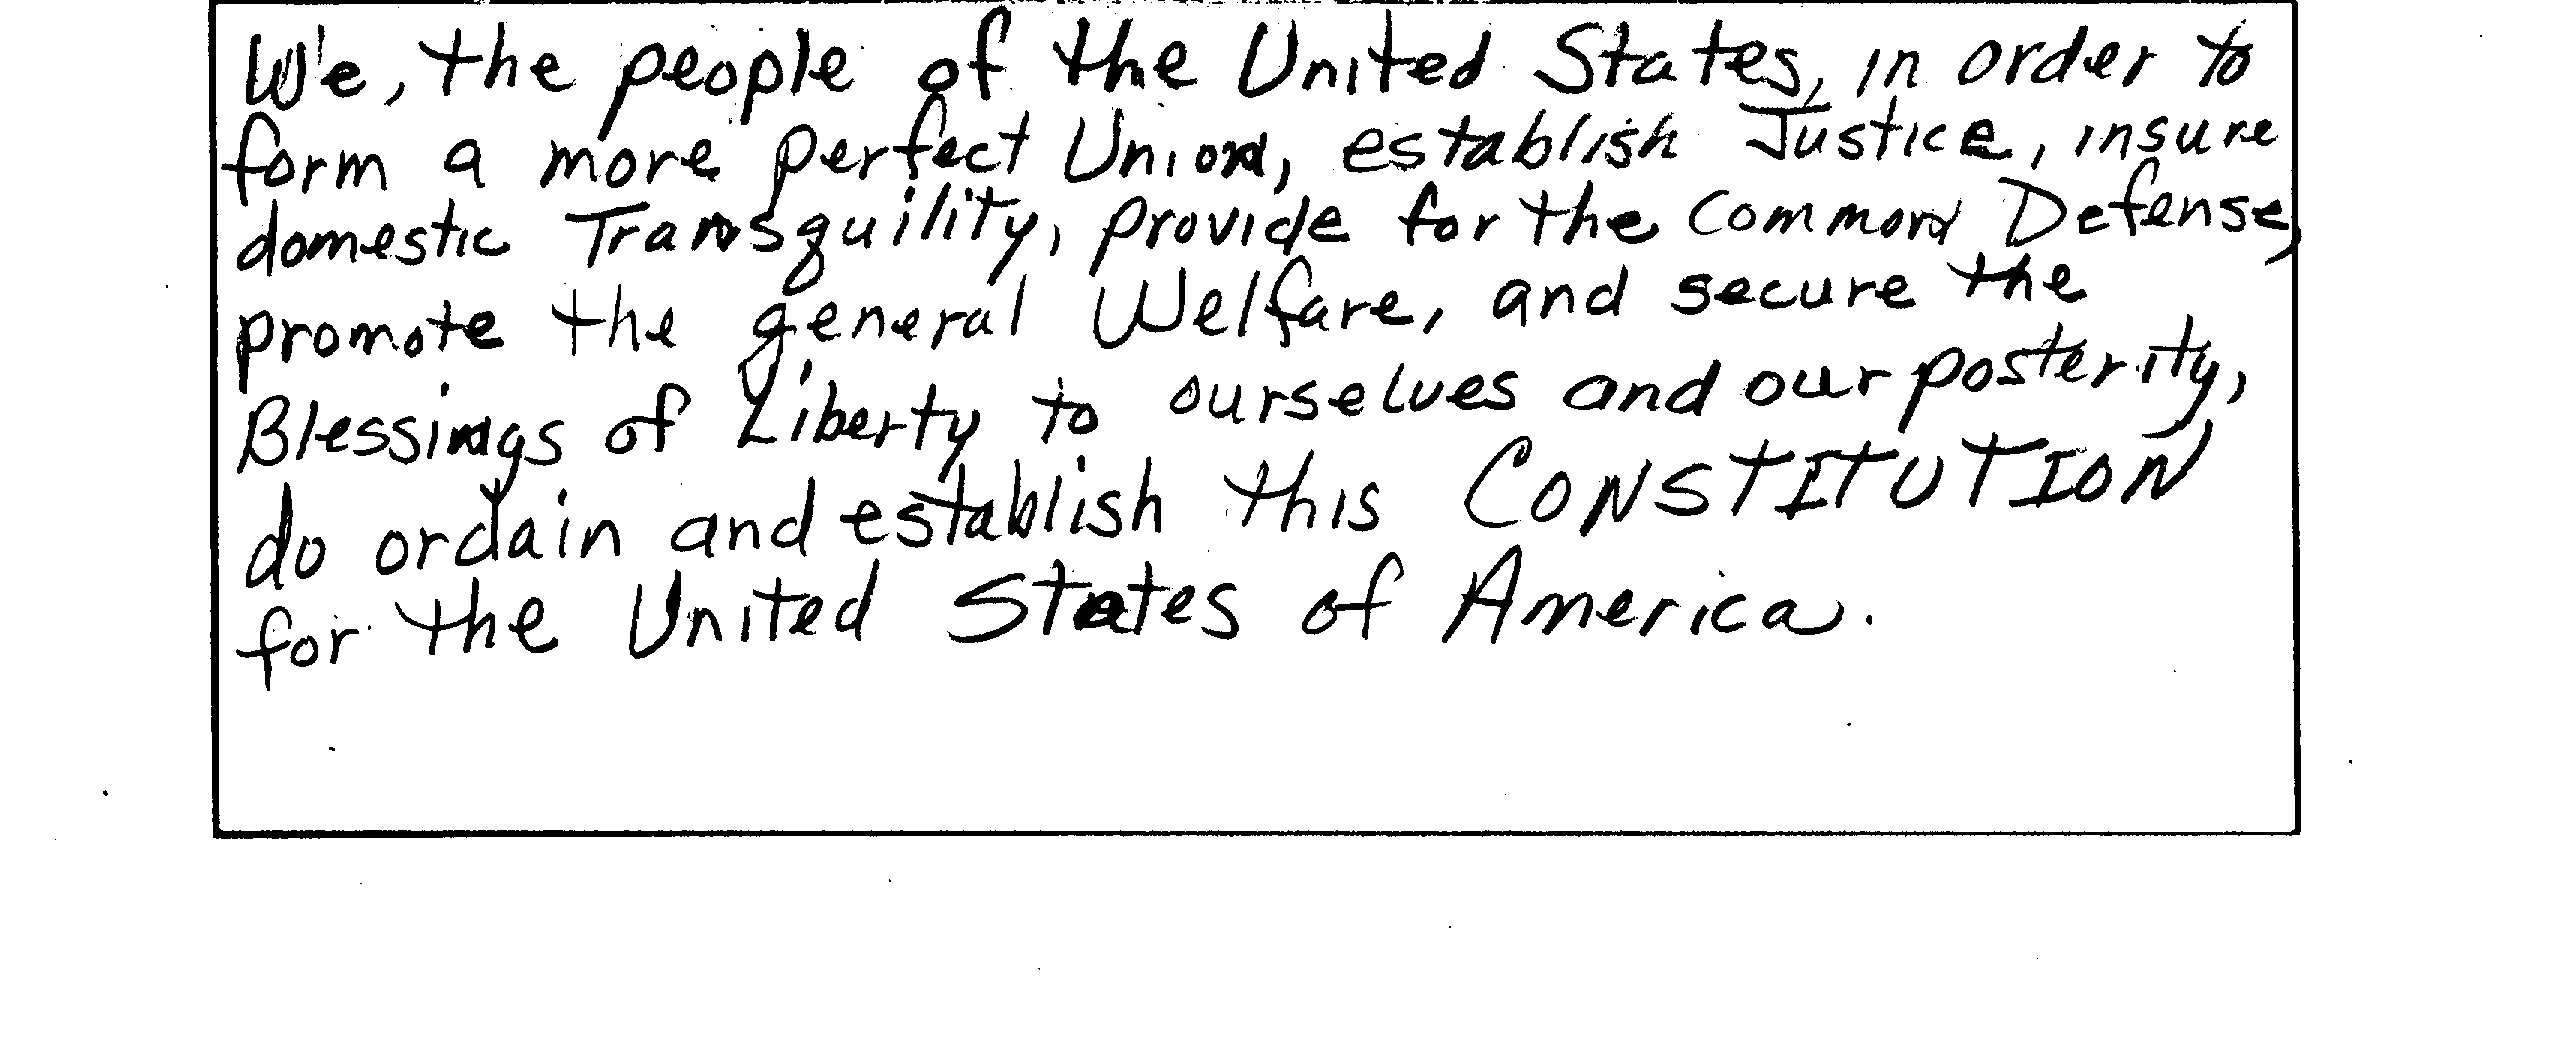 We, the people of the United States, in order to
form a more perfect Union, establish Justice, insure
domestic Transquility, provide for the Common Defense,
promote the general Welfare, and secure the
Blessings of Liberty to ourselves and our posterity,
do ordain and establish this CONSTITUTION
for the United States of America.